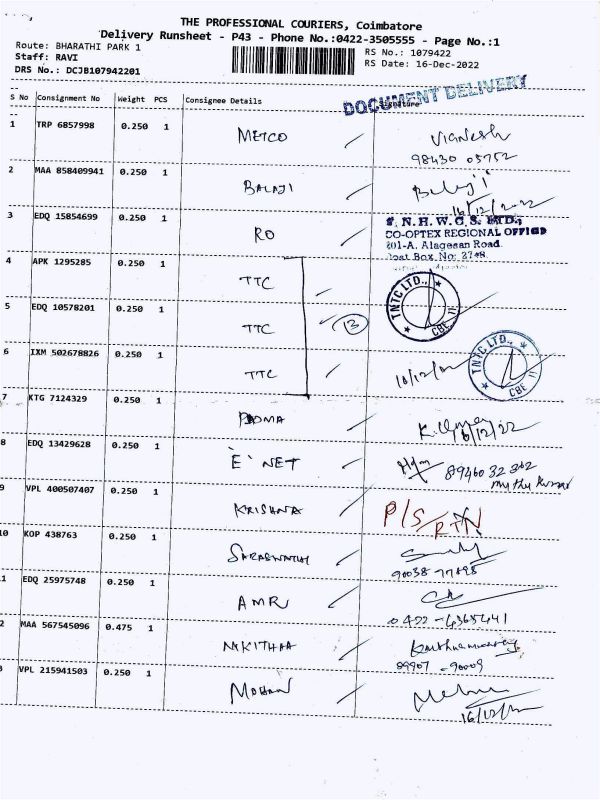 THE PROFESSIONAL COURIERS, Coimbatore
Delivery Runsheet - P43 - Phone No.:0422-3505555 - Page No.:1
Route: BHARATHI PARK 1
RS No.: 1079422
Staff: RAVI
RS Date: 16-Dec-2022
DRS No.: DCJB107942201
DOCUMENT DELIVERY
S No Consignment No Weight PCS Consignee Details Signature
1 TRP 6857998 0.250 1 METCO Vignesh
98430 05752
2 MAA 858409941 0.250 1 BALAJI Balaji
16/12/2022
3 EDQ 15854699 0.250 1 RO
CO-OPTEX REGIONAL OFFICE
201-A. Alagesan Road
Post Box No: 3748
4 APK 1295285 0.250 1 TTC
TNTC LTD., CBE 11
5 EDQ 10578201 0.250 1 TTC 13
6 IXM 502678826 0.250 1 TTC
TNTC LTD., CBE 11
7 KTG 7124329 0.250 1 PADMA
16/12/22
8 EDQ 13429628 0.250 1 E' NET
Muthu Kumar
9 VPL 400507407 0.250 1 KRISHNA P/S/RTN
10 KOP 438763 0.250 1 SARASWATHI
1 EDQ 25975748 0.250 1 AMR
0422-4365441
2 MAA 567545096 0.475 1 NIKITHAA
99907-90009
VPL 215941503 0.250 1 MOHAN